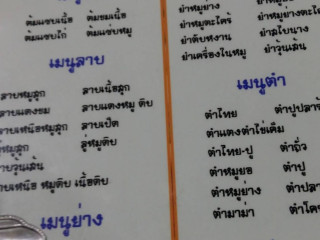 ต้มแซบเนื้อ ต้มขมเนื้อ
ต้มแซบไก่ ต้มแซบหมู
เมนูลาบ
ลาบหมูสุก ลาบเนื้อสุก
ลาบแดงขม ลาบแดงหมู ดิบ
ลาบเหนือหมูสุก ลาบเป็ด
หมูสุก ลู่หมูดิบ
ลาบวุ้นเส้น
ลาบเหนือ หมูดิบ เนื้อดิบ
เมนูย่าง
ยำหมูย่าง
ยำหมูตะไคร้ ยำหมูยางตะไคร้
ยำตับหวาน ยำสไบนาง
ยำเครื่องในหมู ยำวุ้นเส้น
เมนูตำ
ตำไทย ตำปูปลาร้า
ตำแตงตำไข่เค็ม
ตำไทย-ปู ตำถั่ว
ตำหมูยอ ตำปู
ตำหมูย่าง ตำปลา
ตำมาม่า ตำโค